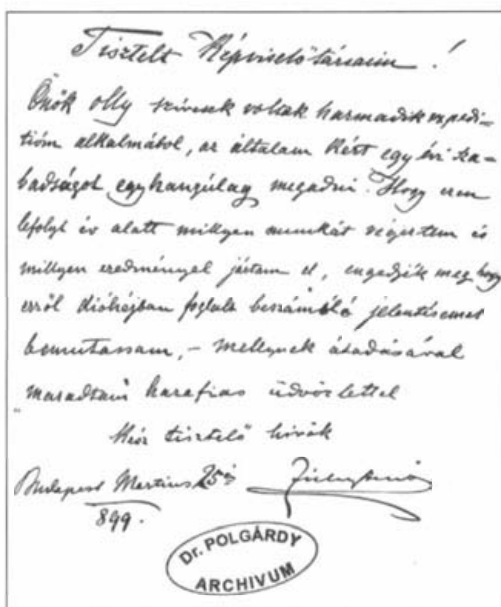 Tisztelt Képviselőtársaim!
Önök olly szívesek voltak harmadik expedi-
tióm alkalmából, az általam kért egy évi sza-
badságot egyhangúlag megadni. Hogy ezen
lefolyt év alatt millyen munkát végeztem és
millyen eredménynyel jártam el, engedjék meg hogy
erről dióhéjban foglalt beszámoló jelentésemet
bemutassam, – mellynek átadásával
maradtam hazafias üdvözlettel
tisztelő hívök
Budapest Martius 25én
899.
Dr. POLGÁRDY
ARCHIVUM